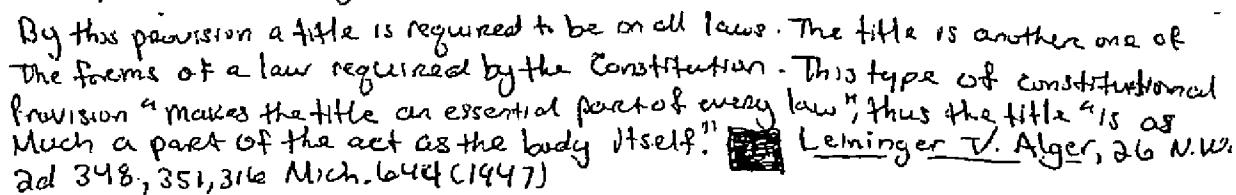 By this provision a title is required to be on all laws. The title is another one of
the forms of a law required by the Constitution. This type of constitutional
Provision "makes the title an essential part of every law", thus the title "is as
Much a part of the act as the body itself." Leininger V. Alger, 26 N.W.
2d 348, 351, 316 Mich. 644 (1947)